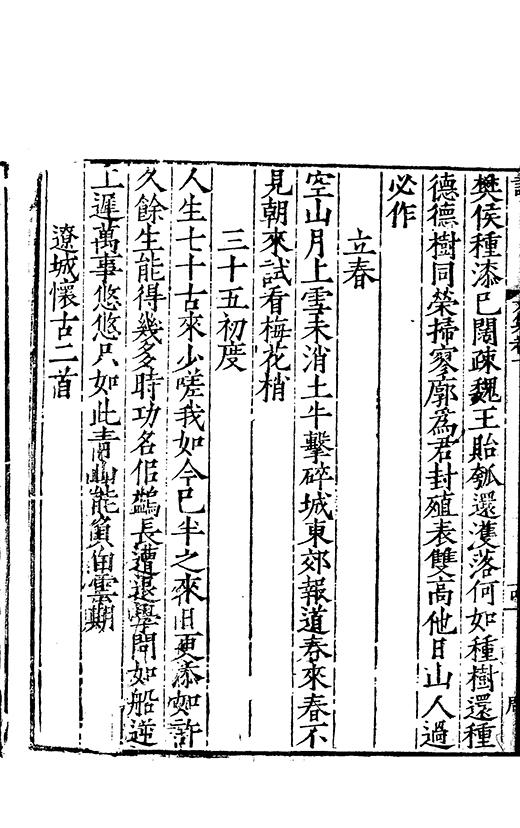 樊侯種漆已闊疎魏王貽瓠還濩落何如種樹還種
德德樹同榮掃寥廓爲君封殖表雙高他日山人過
必作
立春
空山月上雪未消土牛擊碎城東郊報道春來春不
見朝來試看梅花梢
三十五初度
人生七十古來少嗟我如今已半之來日更添如許
久餘生能得幾多時功名佀鷁長遭退學問如船逆
上遲萬事悠悠只如此青山能負白雲期
遼城懷古二首